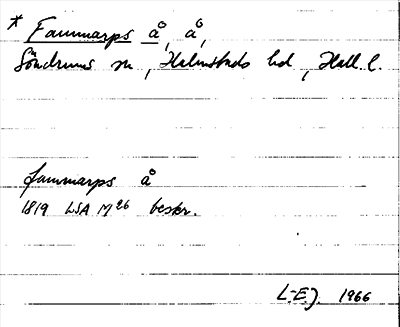 * Fammarps å, å,
Söndrums sn, Halmstads hd, Hall. l.
fammarps å
1819 LSA M26 beskr.
L-E.J. 1966